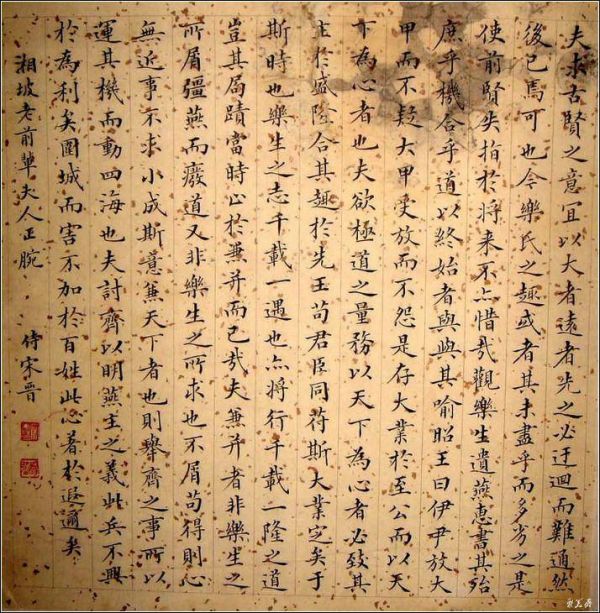 夫求古賢之意宜以大者遠者先之必迂迴而難通然
後已焉可也今樂氏之趣或者其未盡乎而多劣之是
使前賢失指於將来不亦惜哉觀樂生遺燕惠書其殆
庶乎機合乎道以終始者與與其喻昭王曰伊尹放大
甲而不疑大甲受放而不怨是存大業於至公而以天
下為心者也夫欲極道之量務以天下為心者必致其
主於盛隆合其趣於先王苟君臣同苻斯大業定矣于
斯時也樂生之志千載一遇也亦將行千載一隆之道
豈其局蹟當時止於兼并而已哉夫兼并者非樂生之
所屑彊燕而癈道又非樂生之所求也不屑苟得則心
無近事不求小成斯意兼天下者也則舉齊之事所以
運其機而動四海也夫討齊以明燕主之義此兵不興
於為利矣圍城而害不加於百姓此心著於遐邇矣
湘坡老前輩夫人正腕
侍宋晋